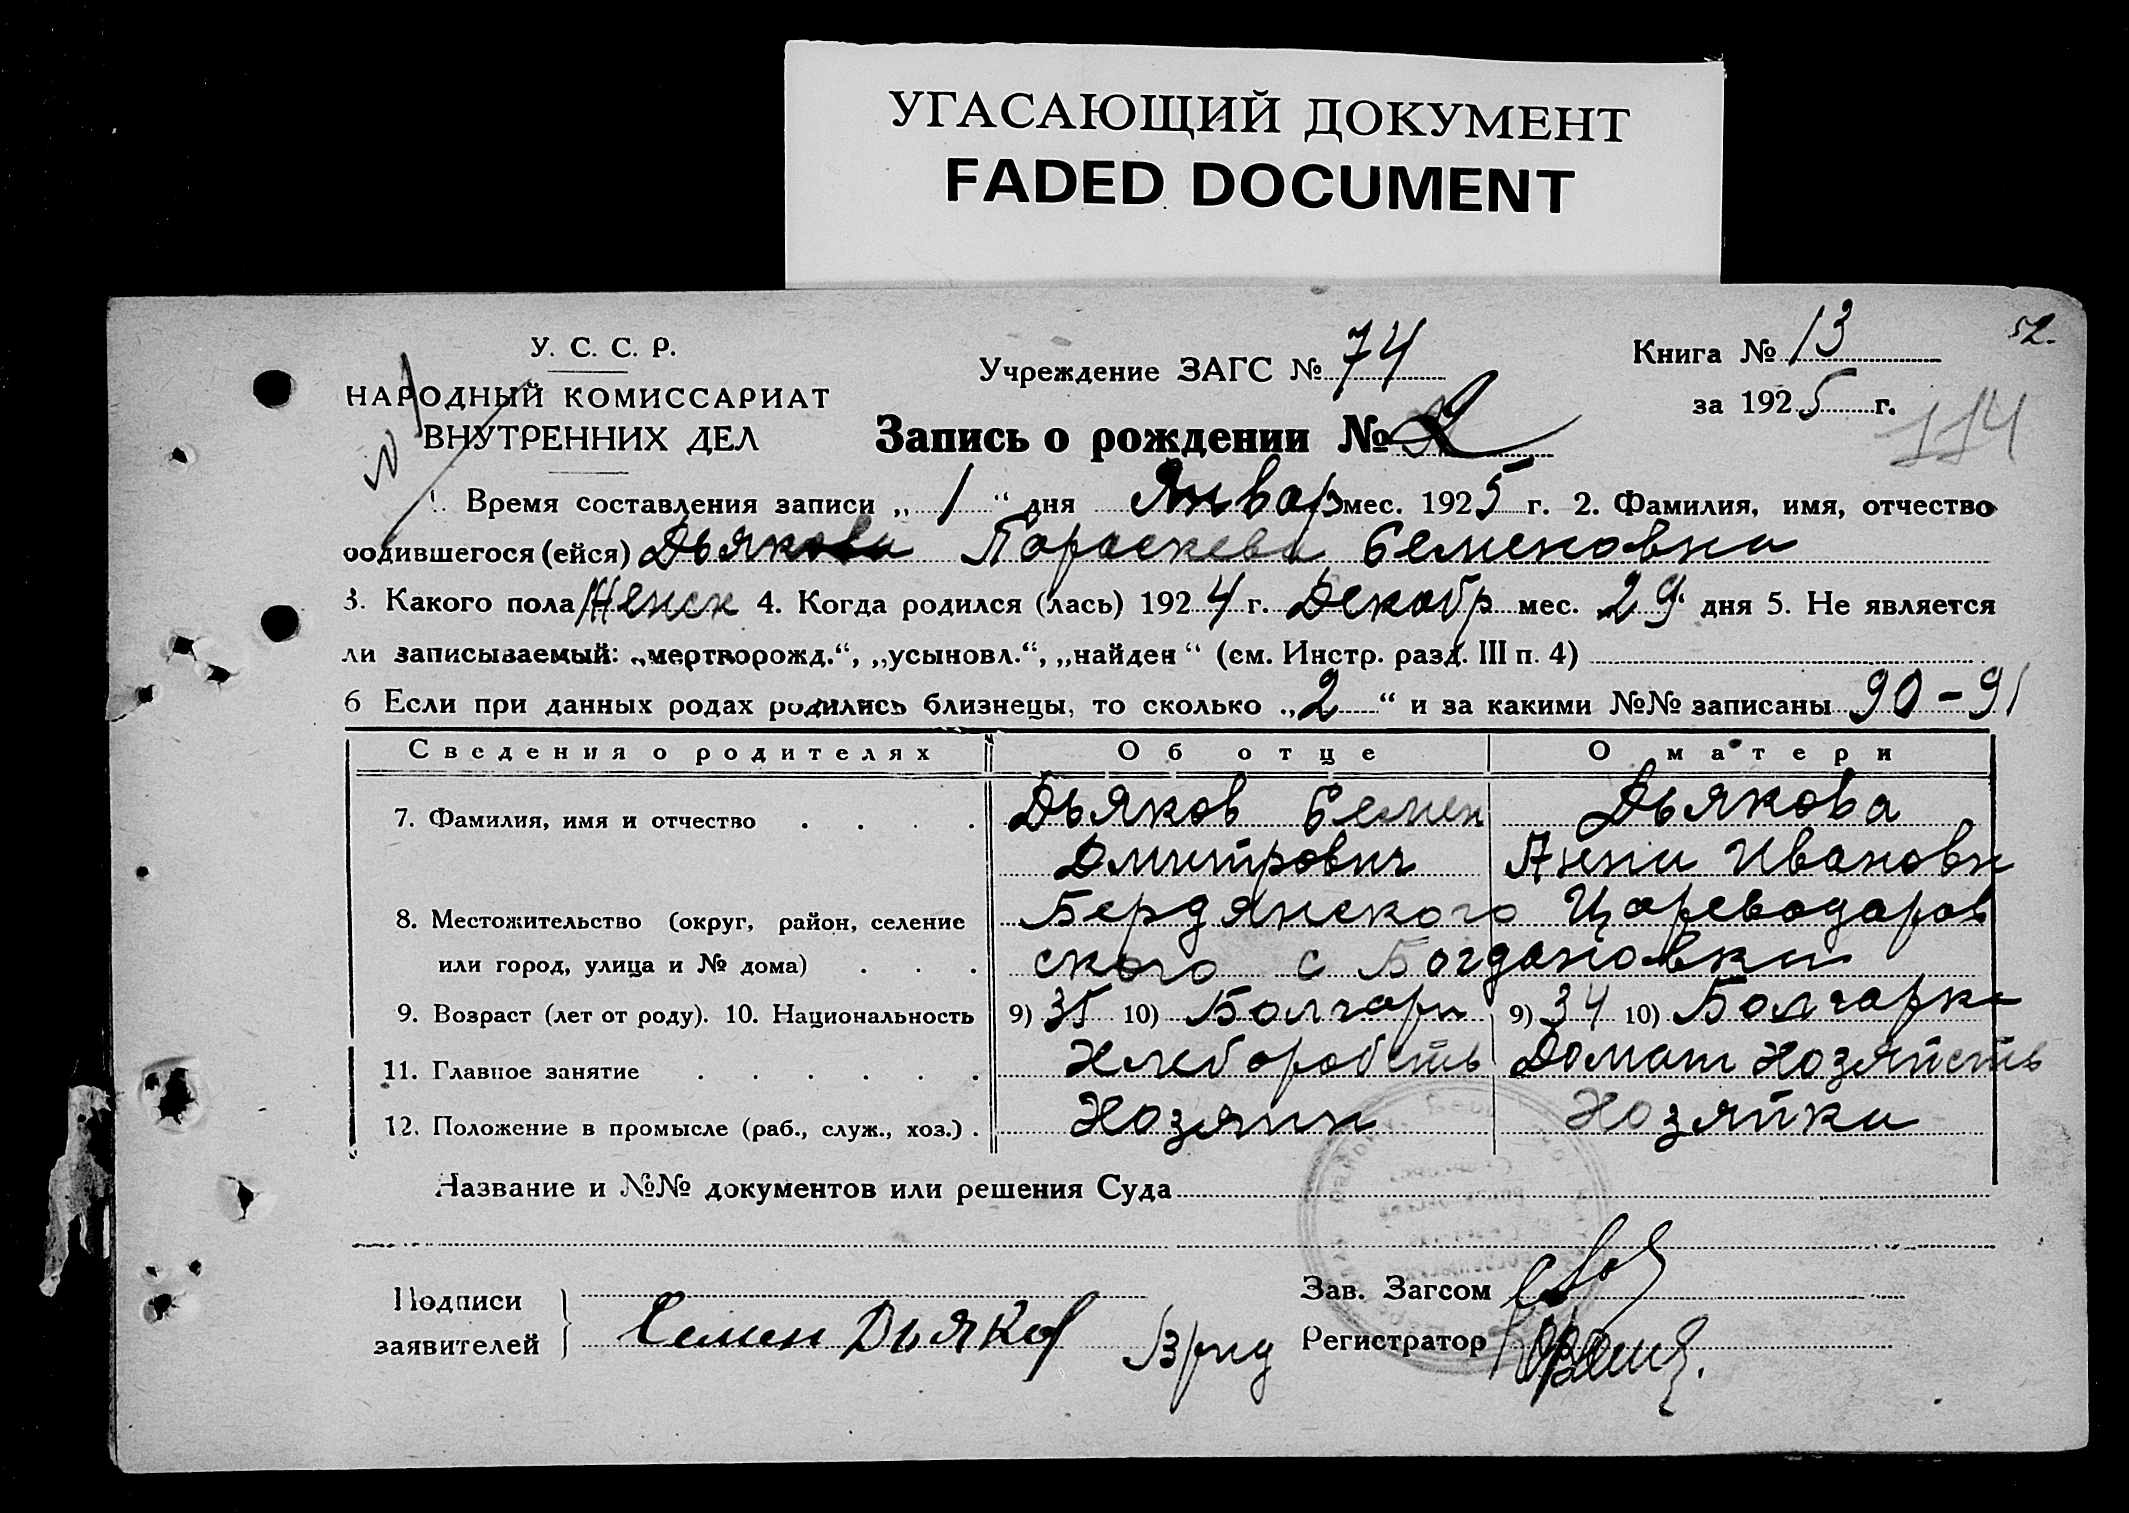 УГАСАЮЩИЙ ДОКУМЕНТ
FADED DOCUMENT
52.
У. С. С. Р.
НАРОДНЫЙ КОМИССАРИАТ
ВНУТРЕННИХ ДЕЛ
N 1
Учреждение ЗАГС № 74
Книга № 13
за 1925 г.
114
Запись о рождении №
1. Время составления записи „ 1 “ дня Январ мес. 1925 г. 2. Фамилия, имя, отчество
родившегося (ейся) Дьякова Пораскева Семеновна
3. Какого пола Женск 4. Когда родился (лась) 1924 г. Декабр мес. 29 дня 5. Не является
ли записываемый: „мертворожд.“, „усыновл.“, „найден“ (см. Инстр. разд. III п. 4)
6 Если при данных родах родились близнецы, то сколько „ 2 “ и за какими №№ записаны 90-91
Сведения о родителях Об отце О матери
7. Фамилия, имя и отчество Дьяков Семен Дьякова
Дмитрович Анна Ивановн
8. Местожительство (округ, район, селение Бердянского Цареводаров
или город, улица и № дома) ского с Богдановка
9. Возраст (лет от роду). 10. Национальность 9) 35 10) Болгари 9) 34 10) Болгарка
11. Главное занятие Хлеборобств Домаш Хозяйств
12. Положение в промысле (раб., служ., хоз.) Хозяин Хозяйка
Название и №№ документов или решения Суда
Подписи
заявителей
Семен Дьяков
Зав. Загсом
Регистратор